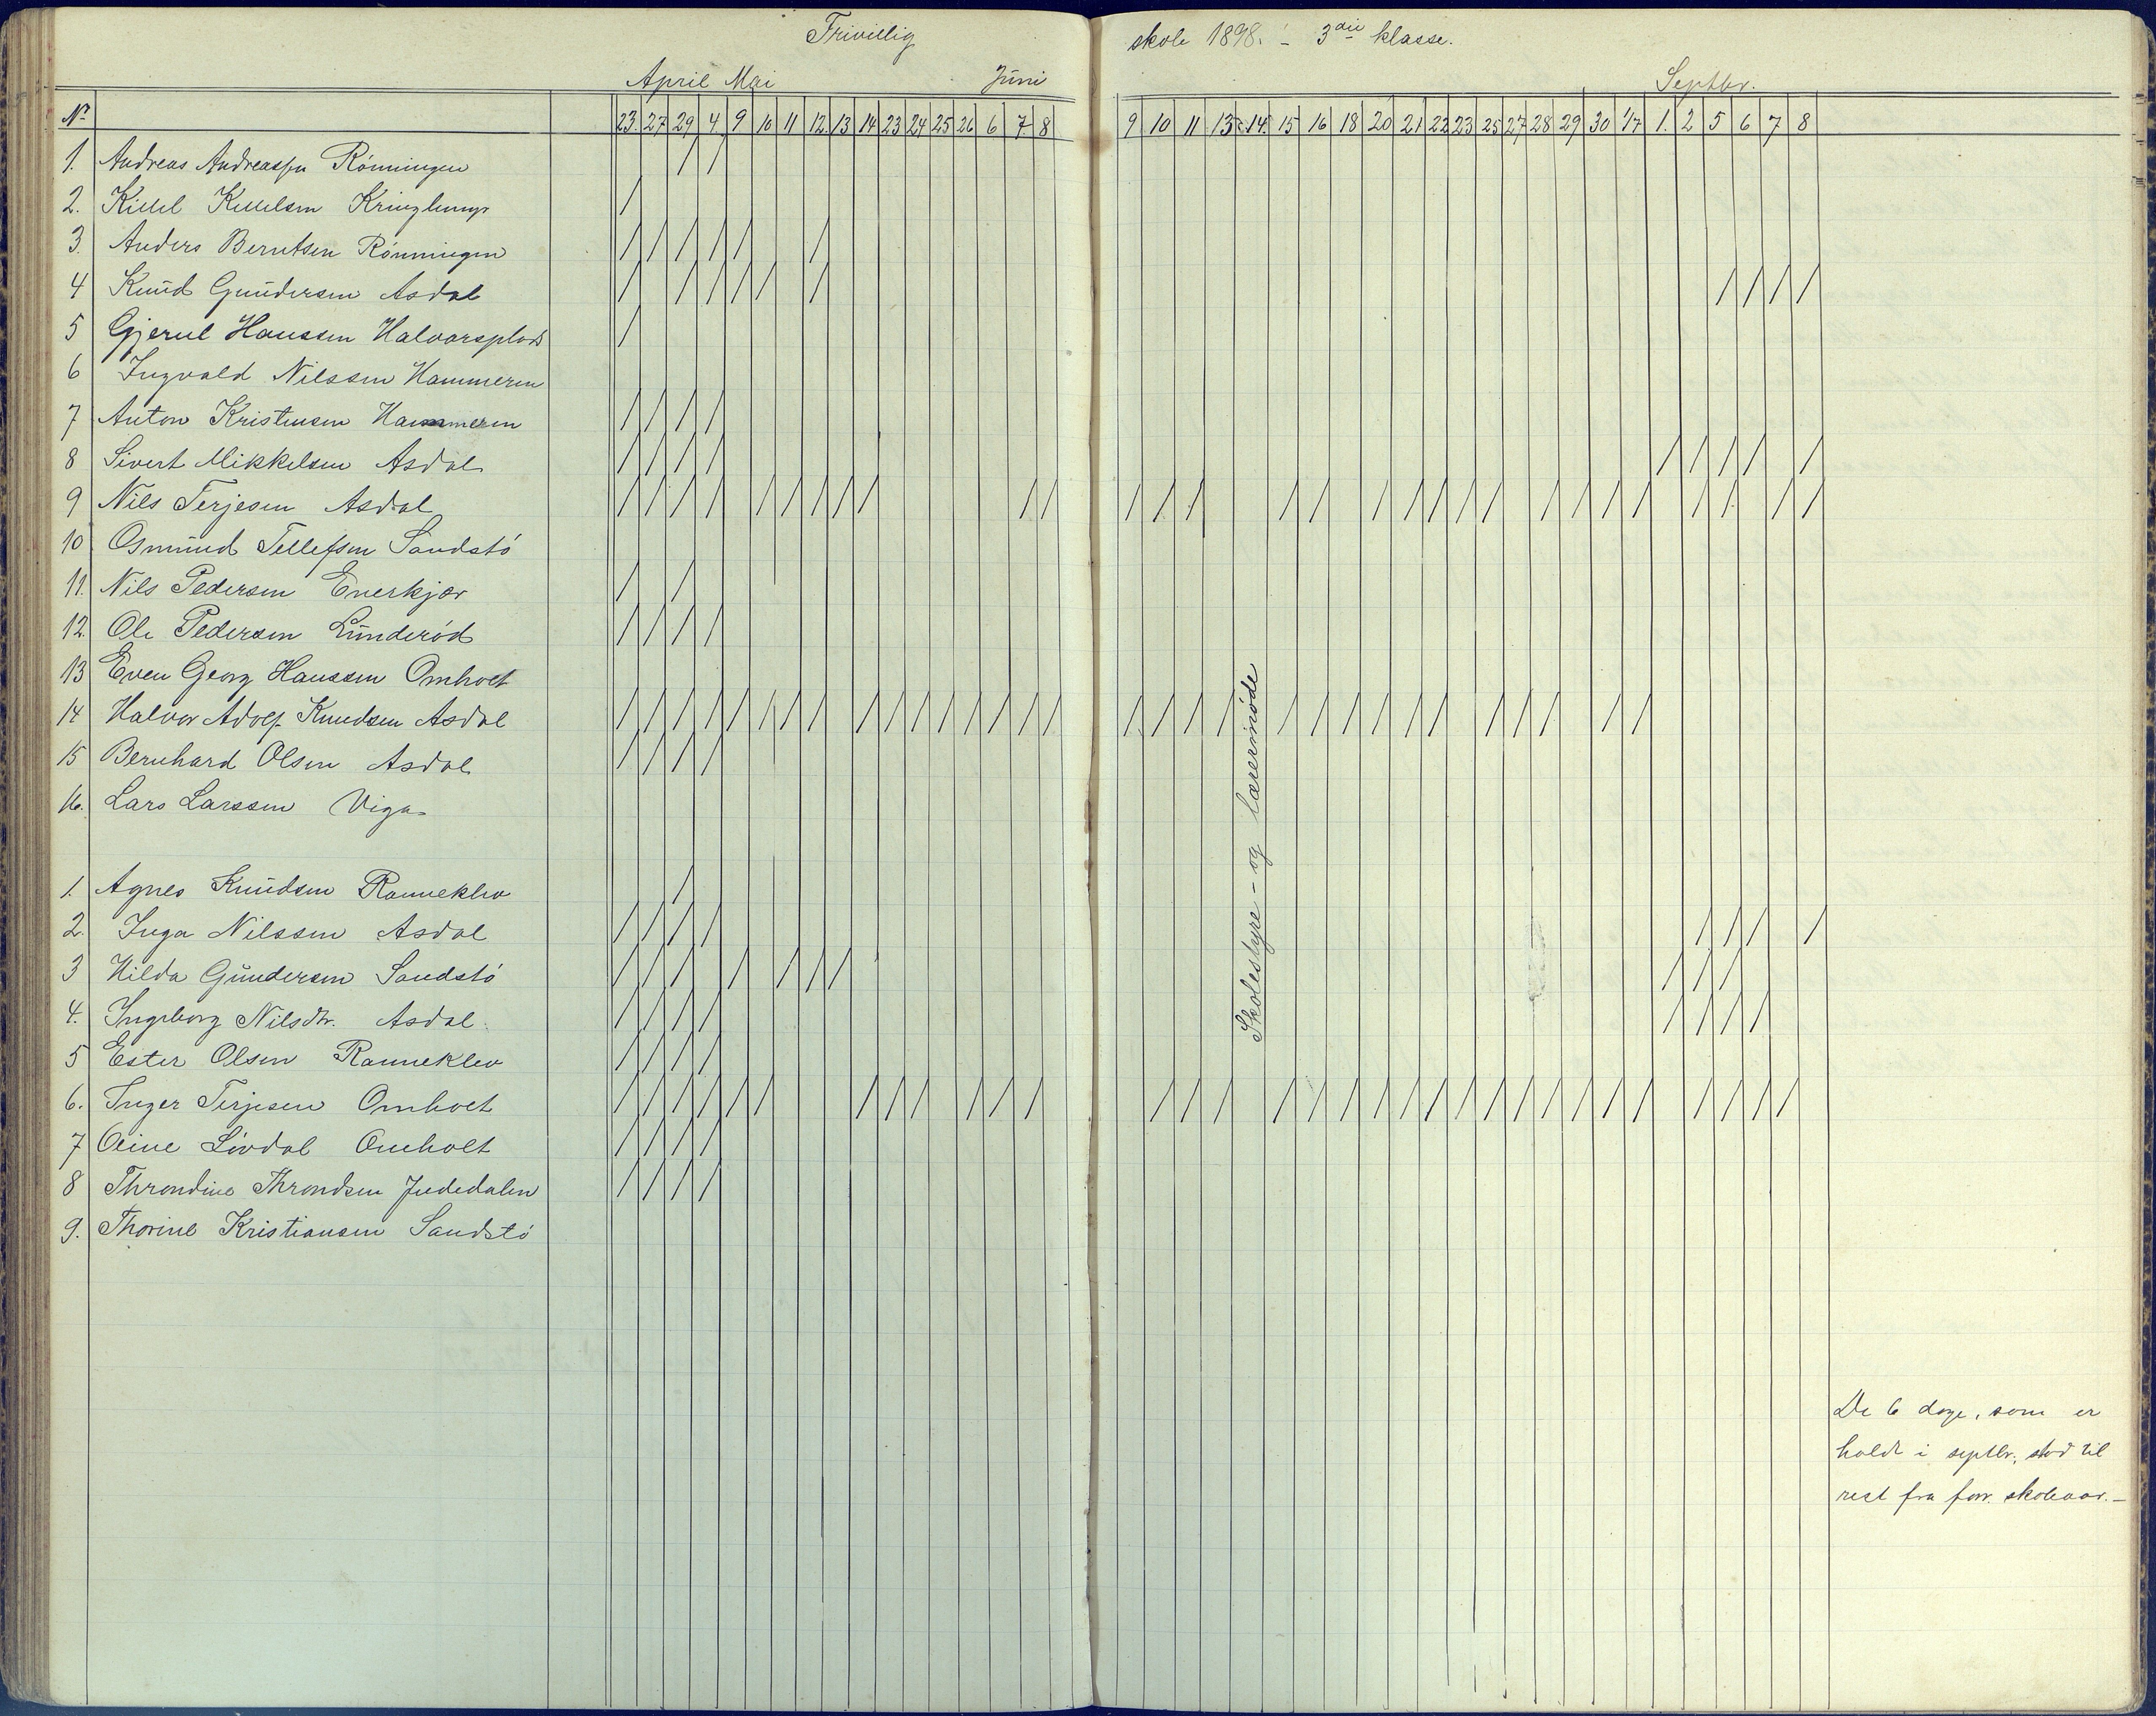 Frivillig skole 1898. - 3die klasse.
April Mai Juni Septbr.
No 23. 27 29 4 9 10 11 12 13 14 23 24 25 26 6 7 8 9 10 11 13 14. 15 16 18 20 21 22 23 25 27 28 29 30 1/7 1. 2 5 6 7 8
1. Andreas Andreassen Rönningen
2. Kittel Kittelsen
3. Anders Berntsen Rönningen
4 Knud Gundersen Asdal
5 Gjerul Hanssen Halvorsplads
6 Ingvald Nilssen Hammeren
7 Anton Kristensen Hammeren
8 Sivert Mikkelsen Asdal
9 Nils Terjesen Asdal
10 Osmund Tellefsen Sandstö
11. Nils Pedersen Enerkjær
12. Ole Pedersen Lunderöd
13 Even Georg Hanssen Omholt
14 Halvor Adolf Knudsen Asdal
15 Bernhard Olsen Asdal
16. Lars Larssen Viga
1. Agnes Knudsen Ranneklev
2. Inga Nilssen Asdal
3 Hilda Gundersen Sandstö
4. Ingeborg Nilsdtr. Asdal.
5 Ester Olsen Ranneklev
6. Inger Terjesen Omholt
7 Oline Lövdal Omholt
8 Throndine Throndsen
9. Thorine Kristiansen Sandstö
Skolestyre- og lærermöde
De 6 dage, som er
holdt i septbr., stod til
rest fra forr. skoleaar. -